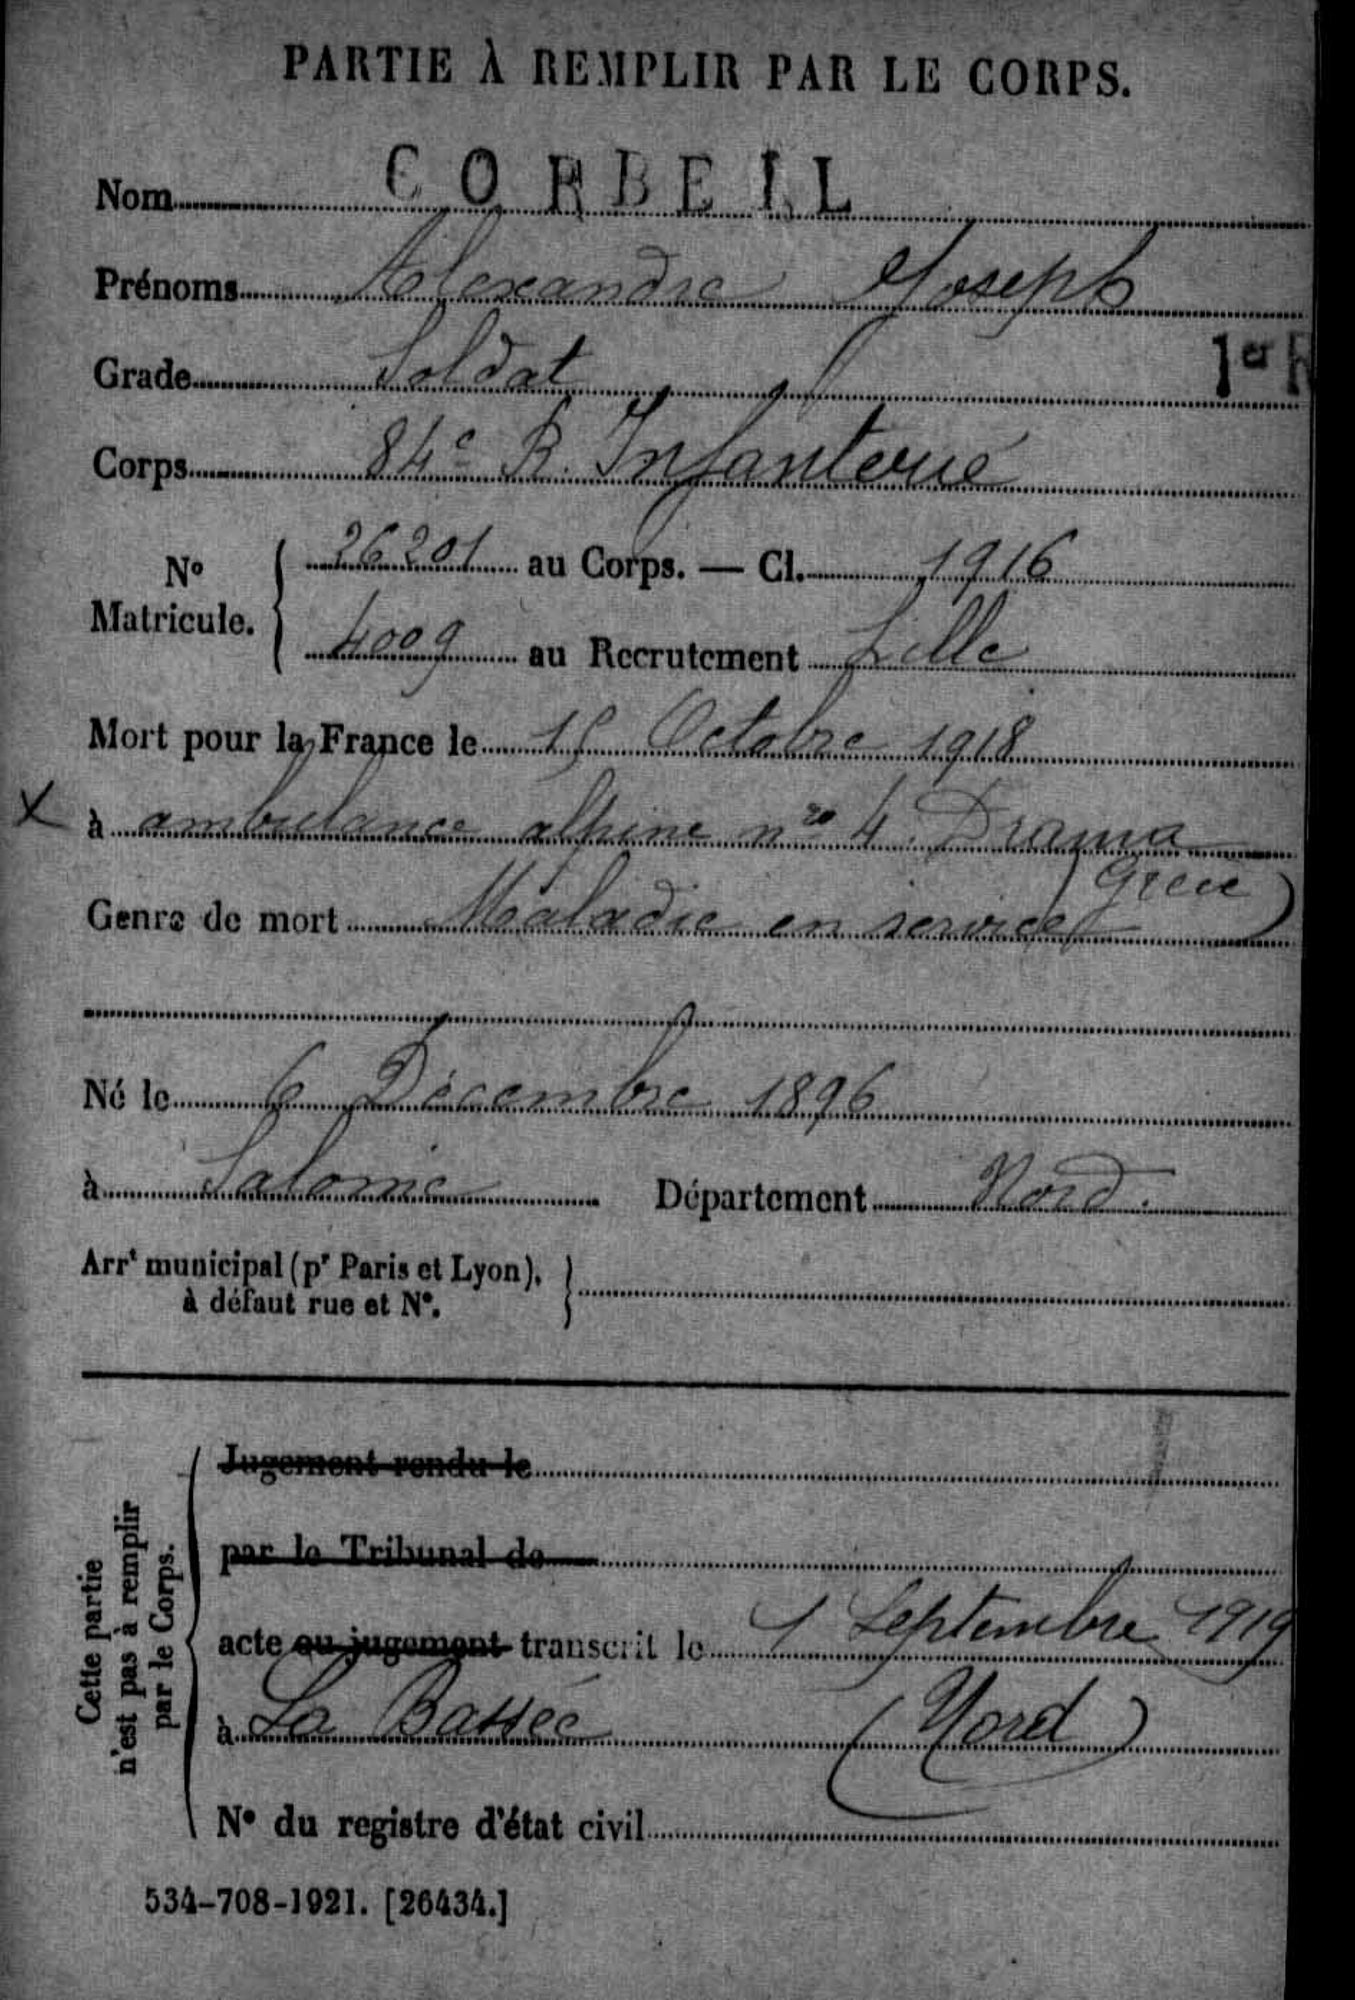 PARTIE À REMPLIR PAR LE CORPS.
Nom CORBEIL
Prénoms Alexandre Joseph
1er
Grade Soldat
Corps 84e R. Infanterie
No Matricule. 26201 au Corps. — Cl. 1916
4009 au Recrutement Lille
Mort pour la France le 15 Octobre 1918
X à ambulance alpine nro 4. Drama
(Grece)
Genre de mort Maladie en service
Né le 6 Décembre 1896
à Salomé Département Nord.
Arrt municipal (pr Paris et Lyon),
à défaut rue et No.
Cette partie
n'est pas à remplir
par le Corps.
Jugement rendu le
par le Tribunal de
acte ou jugement transcrit le 1 Septembre 1919
à La Bassée (Nord)
No du registre d'état civil
534-708-1921. [26434.]